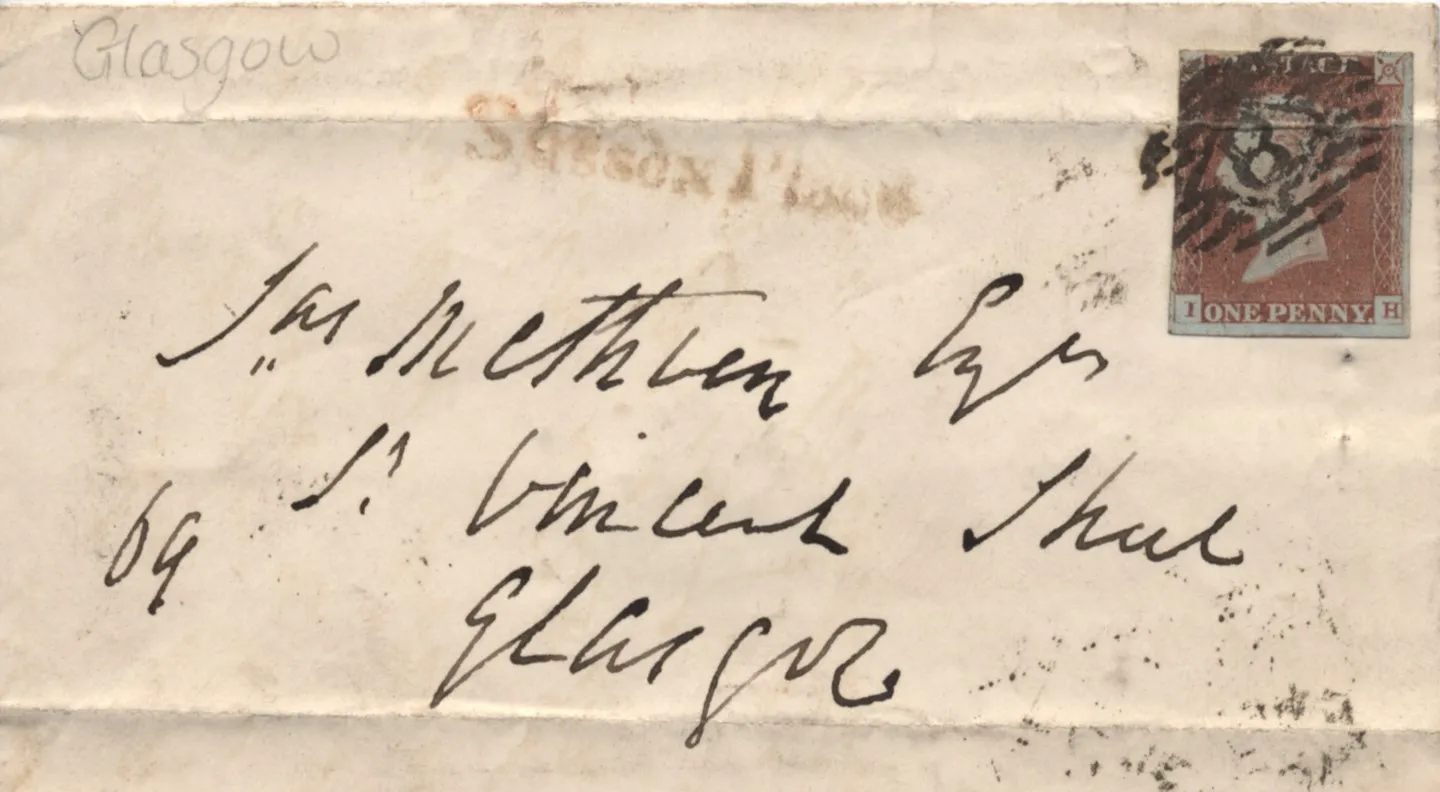 Glasgow
POSTAGE
8
I ONE PENNY. H
Jas Methven Esqr
69 St Vincent Street
Glasgow